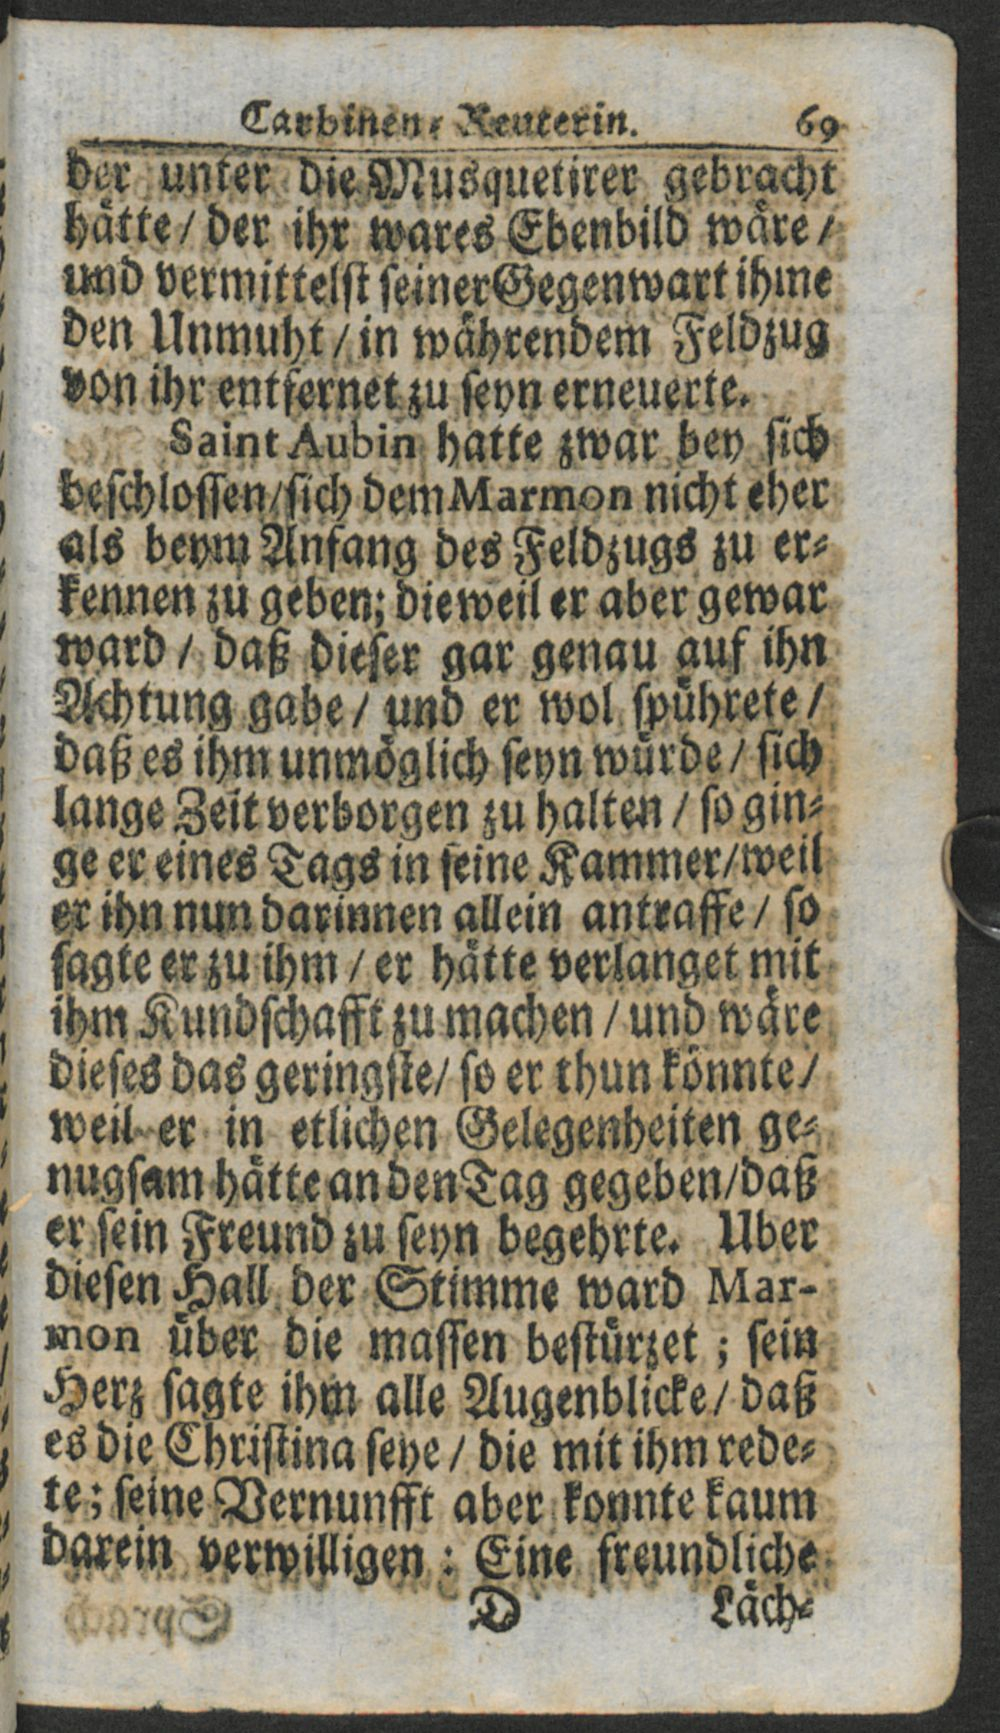 Carbinen-Reuterin. 69
der unter die Musquetirer gebracht
hätte / der ihr wares Ebenbild wäre /
und vermittelst seiner Gegenwart ihme
den Unmuht / in währendem Feldzug
von ihr entfernet zu seyn erneuerte.
Saint Aubin hatte zwar bey sich
beschlossen / sich dem Marmon nicht eher
als beym Anfang des Feldzugs zu er-
kennen zu geben; dieweil er aber gewar
ward / daß dieser gar genau auf ihn
Achtung gabe / und er wol spührete /
daß es ihm unmöglich seyn würde / sich
lange Zeit verborgen zu halten / so gin-
ge er eines Tags in seine Kammer / weil
er ihn nun darinnen allein antraffe / so
sagte er zu ihm / er hätte verlanget mit
ihm Kundschafft zu machen / und wäre
dieses das geringste / so er thun könnte /
weil er in etlichen Gelegenheiten ge-
nugsam hätte an den Tag gegeben / daß
er sein Freund zu seyn begehrte. Uber
diesen Hall der Stimme ward Mar-
mon über die massen bestürzet ; sein
Herz sagte ihm alle Augenblicke / daß
es die Christina seye / die mit ihm rede-
te; seine Vernunfft aber konnte kaum
darein verwilligen : Eine freundliche
D Läch-